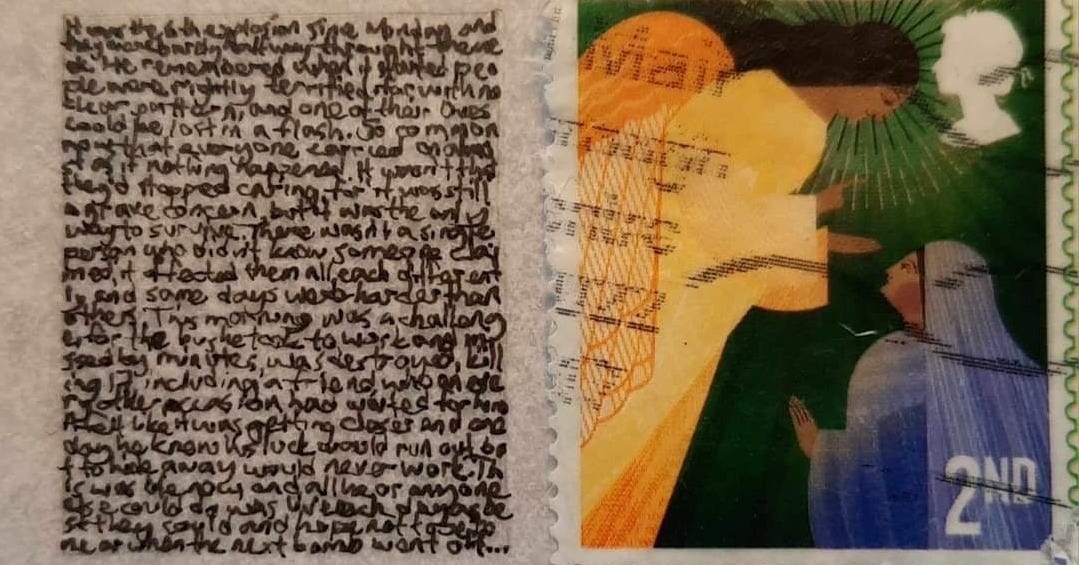 It was the 6th explosion since Monday and
they were barely halfway through the we
ek. He remembered when it started peo
ple were rightly terrified for, with no
clear pattern, and one of their lives
could be lost in a flash. So common
now that everyone carried on
as if nothing happened. It wasn't that
they'd stopped caring for it was still
a grave concern, but it was the only
way to survive. There wasn't a single
person who didn't know someone clai
med, it affected them all each different
ly, and some days were harder than
others. This morning was a challeng
e for the bus he took to work and mi
ssed by minutes, was destroyed, kill
ing 17, including a friend, who on eve
ry other occasion had waited for him
It felt like it was getting closer and one
day he knew his luck would run out, bu
t to hide away would never work. Th
is was and all he or anyone
else could do was live each day as be
st they could and hope not to be to
near when the next bomb went off...
Mail
2ND